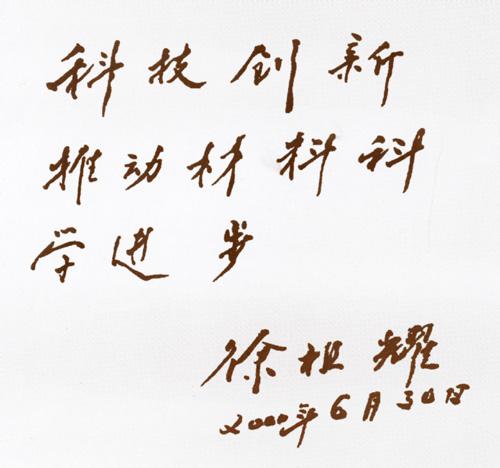 科技创新
推动材料科
学进步
徐祖耀
2000年6月30日